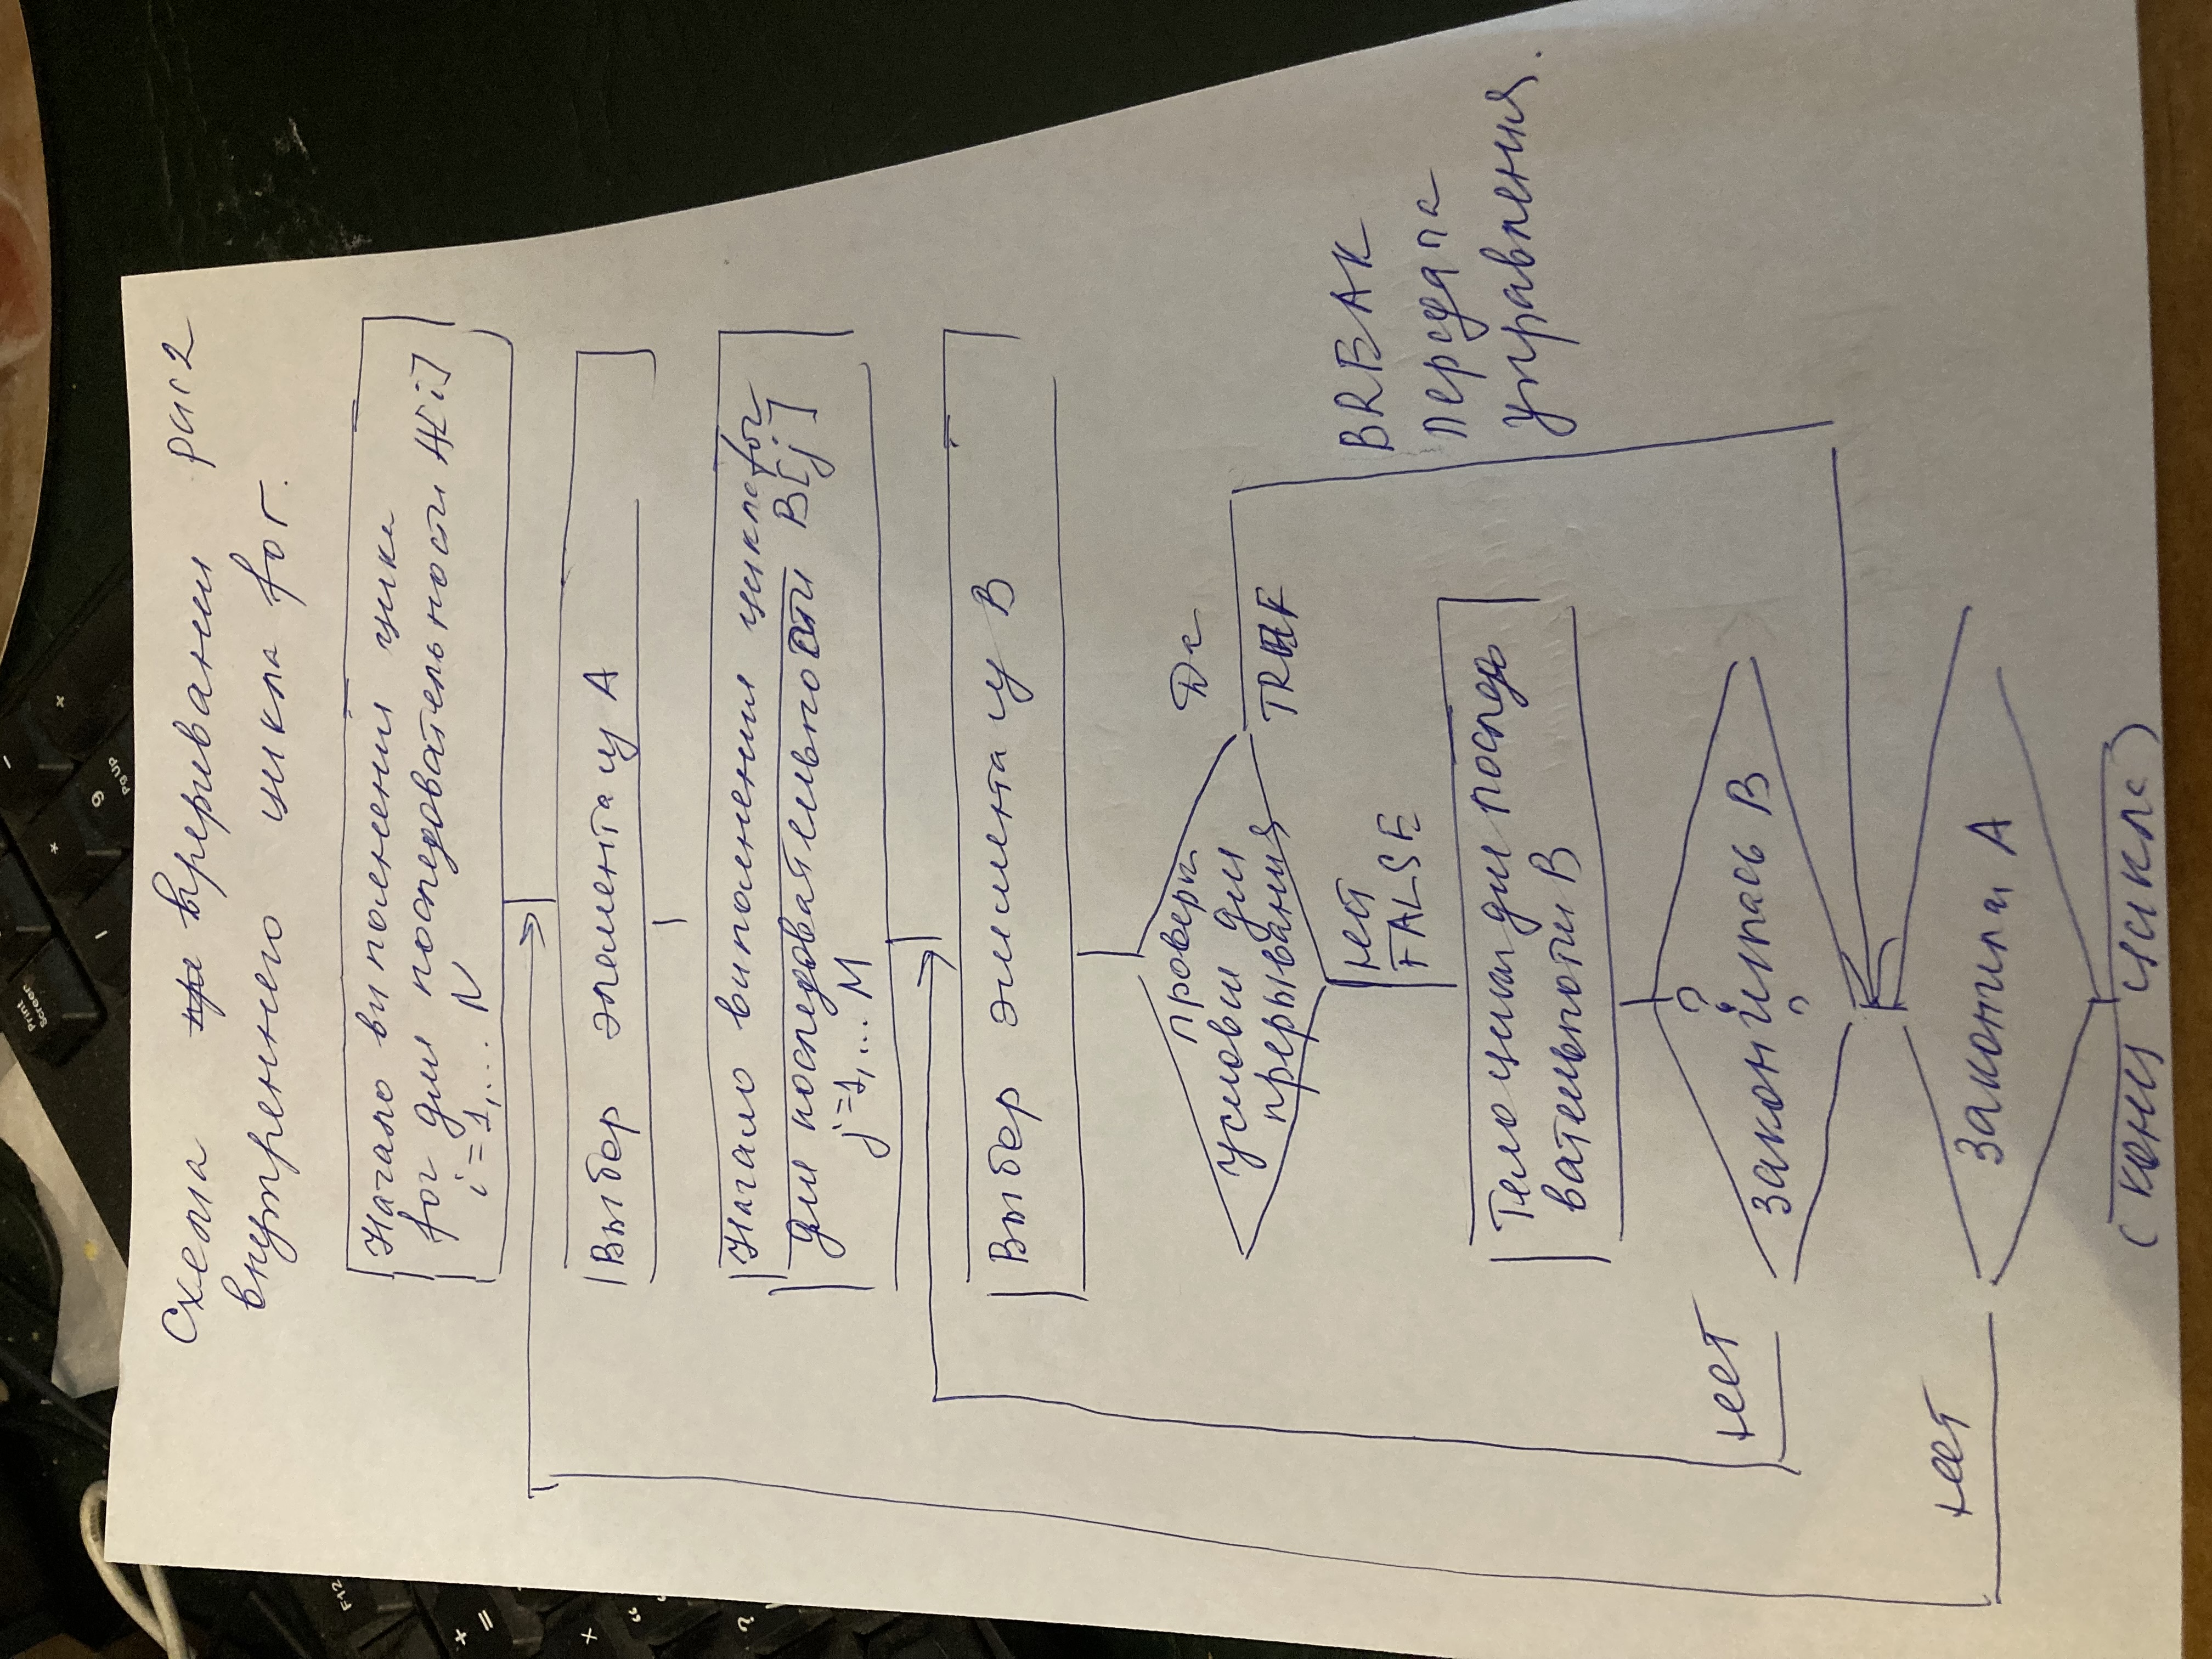 Схема врреривании рис2
внутреннего цикла for.
Начало виполнении цикл
for для последовательности A[i]
i=1,... N
Выбор элемента из A
Начало виполнения цикла for
для последовательности B[j]
j=1,... M
Выбор элемента из B
проверка
условие для
прерывания
Да
TRUE
нет
FALSE
BREAK
передача
управления.
Тело цикла для последо
вательности B
?
Закончилась B
?
нет
Закончилась A
нет
(конец цикла)
Print
Screen
*
-
+
9
Pg Up
F12
+
=
?